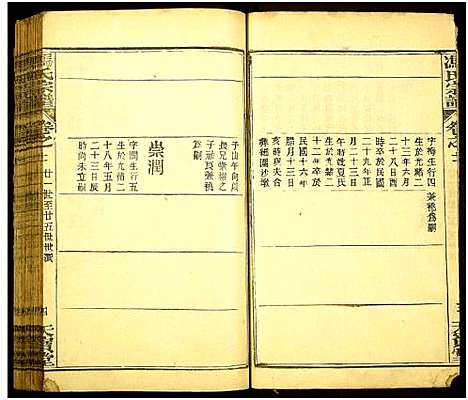 馮氏宗譜
卷之二
字梅生行四
兼祧爲嗣
生於光緒二
十二年六月
二十八日酉
時卒於民國
二十九年正
月二十三日
午時娶夏氏
生於光緒二
十二年卒於
民國十六年
臘月十三日
亥時與夫合
葬
團沙墩
子山午向以
長兄崇維之
子
兼祧
爲嗣
崇潤
字潤生行五
生於光緒二
十八年五月
二十三日辰
時尚未立嗣
馮氏宗譜
卷之二
廿一世至廿五世世系